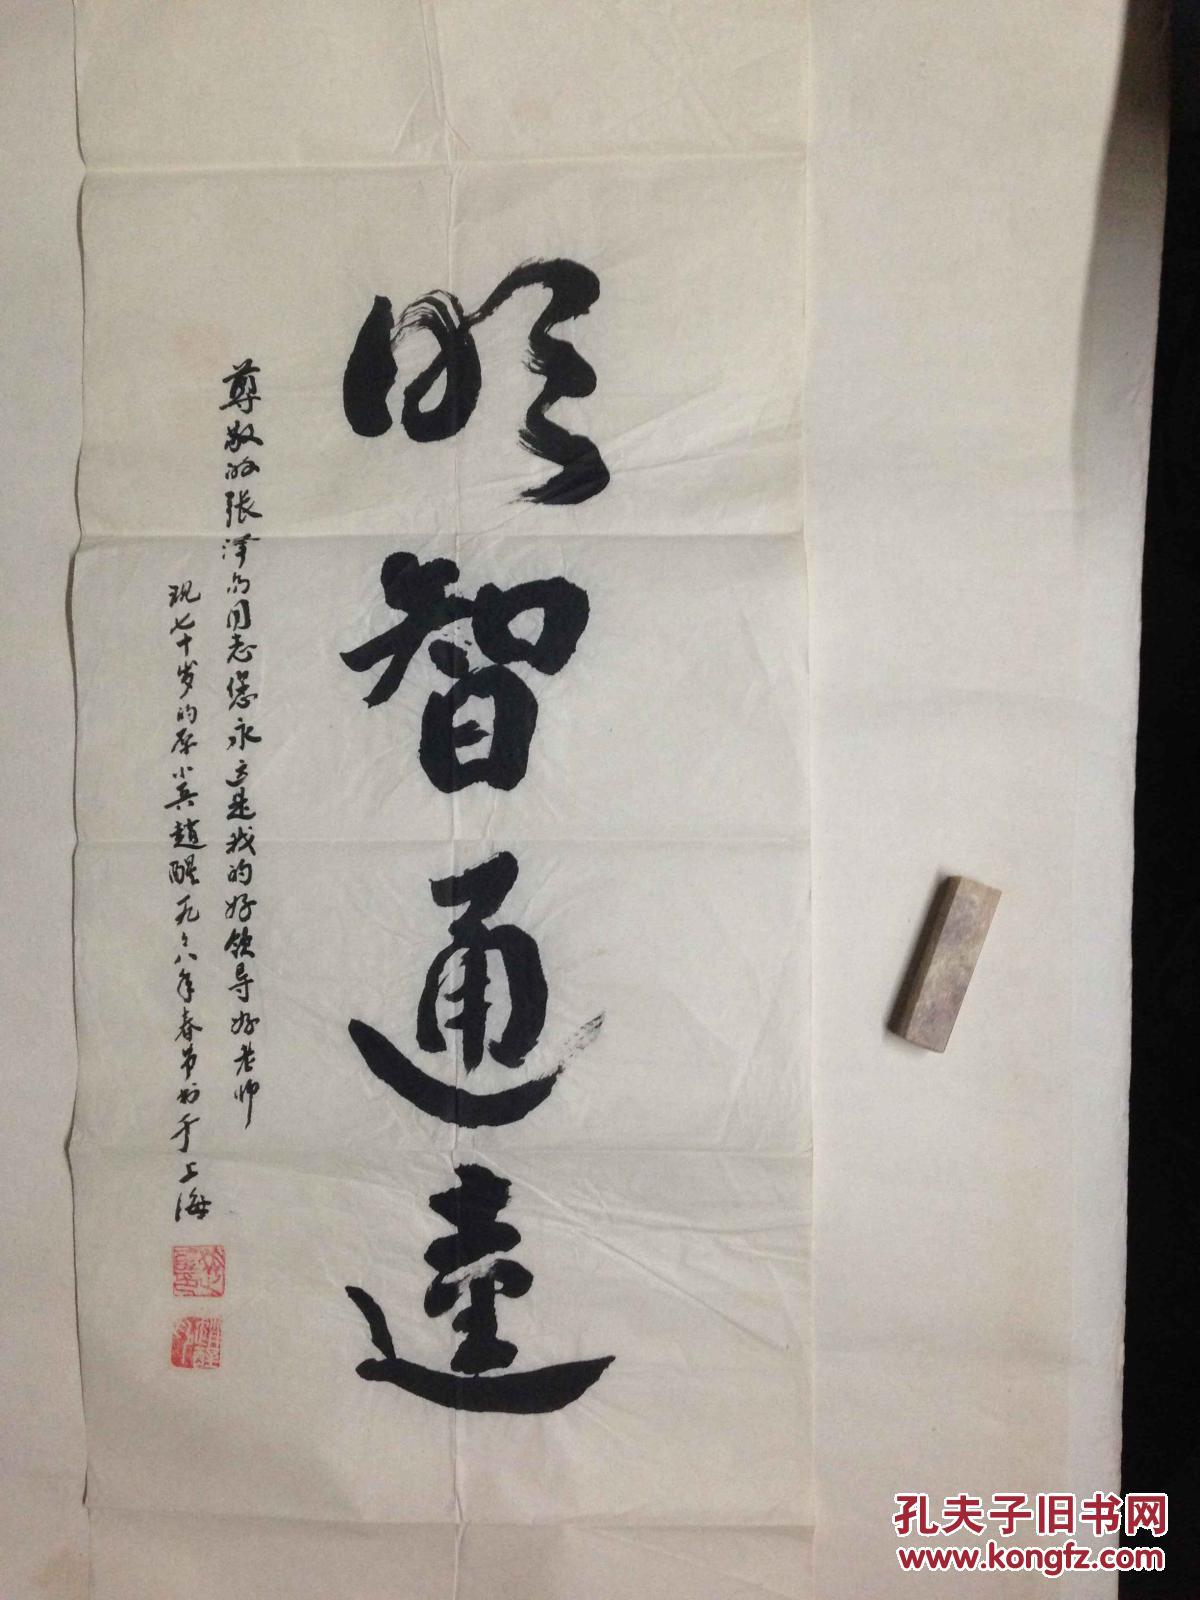 明智通達
尊敬的张泽同志您永远是我的好领导好老师
现七十岁的原小兵趙醒九六年春节书于上海
孔夫子旧书网
www.kongfz.com